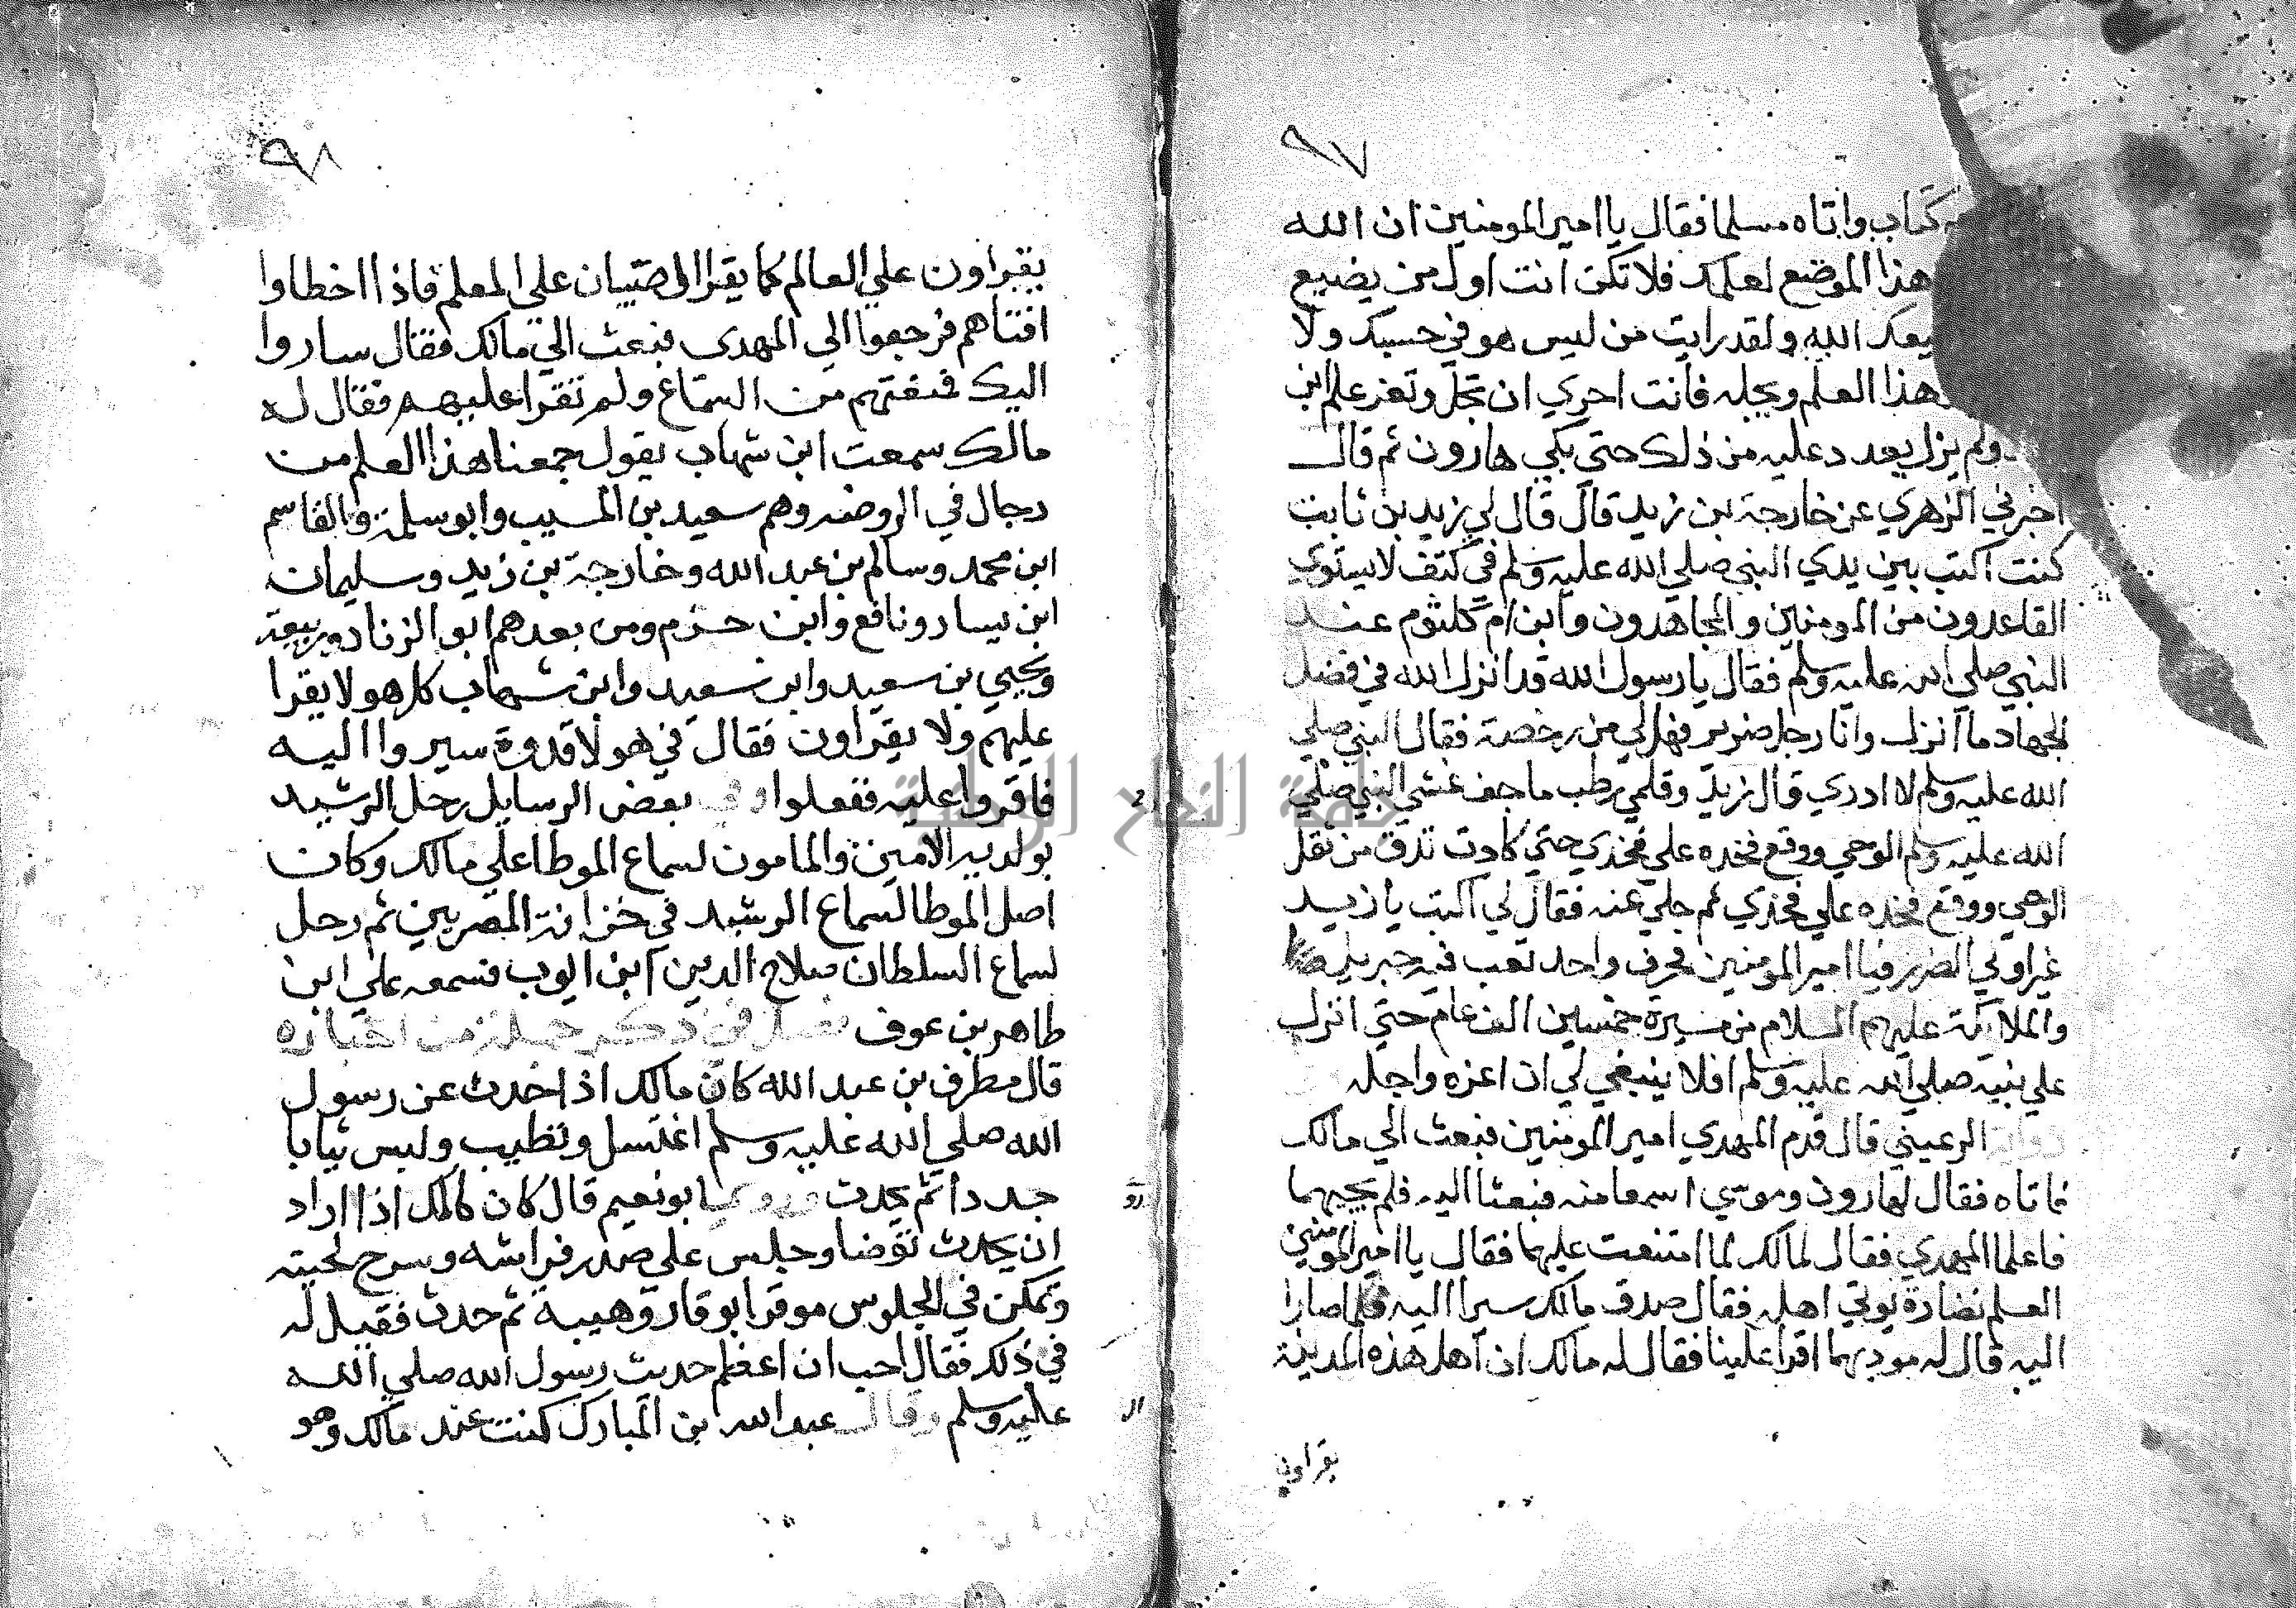 ٩٧
كتاب واتاه مسلما فقال يا امير المومنين ان الله
هذا الموضع لعلمك فلا تكن انت اول من يضيع
يعد الله ولقد رايت من ليس هو في حسبك ولا
هذا العلم ويجله فانت احري ان تجل وتعز علم ابن
ولم يزل يعدد عليه من ذلك حتي بكي هارون ثم قال
اخبرني الزهري عن خارجة بن زيد قال قال لي زيد بن ثابت
كنت اكتب بين يدي النبي صلي الله عليه وسلم في كتف لا يستوي
القاعدون من المومنين والمجاهدون وابن ام كلثوم عند
النبي صلي الله عليه وسلم فقال يا رسول الله قد انزل الله في فضل
الجهاد ما انزل وانا رجل ضرير فهل لي من رخصة فقال النبي صلي
الله عليه وسلم لا ادري قال زيد وقلمي رطب ما جف غشي النبي صلي
الله عليه وسلم الوحي ووقع فخده علي فخذي حتي كادت تدق من ثقل
الوحي ووقع فخده علي فخذي ثم جلي عنه فقال لي اكتب يا زيد
غير اولي الضرر فيا امير المومنين بحرف واحد تعب فيه جبريل
والملايكة عليهم السلام من مسيرة خمسين الف عام حتي انزل
علي نبيه صلي الله عليه وسلم افلا ينبغي لي ان اعزه واجله
رواية الرعيني قال قدم المهدي امير المومنين فبعث الي مالك
فاتاه فقال لهارون وموسي اسمعا منه فبعثا اليه فلم يجبهما
فاعلما المهدي فقال لمالك لما امتنعت عليهما فقال يا امير المومنين
العلم نضارة يوتي اهله فقال صدق مالك سيرا اليه فلما صارا
اليه قال له مودبهما اقرا علينا فقال له مالك ان اهل هذه المدينة
يقراون
٩٨
يقراون علي العالم كما يقرا الصبيان علي المعلم فاذا اخطاوا
افتاهم فرجعوا الي المهدي فبعث الي مالك فقال ساروا
اليك فمنعتهم من السماع ولم تقرا عليهم فقال له
مالك سمعت ابن شهاب يقول جمعنا هذا العلم من
رجال في الروضه وهم سعيد بن المسيب وابو سلمة والقاسم
ابن محمد وسالم بن عبد الله وخارجة بن زيد وسليمان
ابن يسار ونافع وابن حزم ومن بعدهم ابو الزناد وربيعة
ويحيي بن سعيد وابن سعيد وابن شهاب كل هولا يقرا
عليهم ولا يقراون فقال في هولا قدوة سيروا اليه
فاقروا عليه ففعلوا وفي بعض الرسايل رحل الرشيد
بولديه الامين والمامون لسماع الموطا علي مالك وكان
اصل الموطا لسماع الرشيد في خزانة المصريين ثم رحل
لسماع السلطان صلاح الدين ابن ايوب فسمعه علي ابن
طاهر بن عوف فصل في ذكر جملة من اخباره
قال مطرف بن عبد الله كان مالك اذا حدث عن رسول
الله صلي الله عليه وسلم اغتسل وتطيب ولبس ثيابا
جددا ثم يحدث وروي ابو نعيم قال كان مالك اذا اراد
ان يحدث توضا وجلس علي صدر فراشه وسرح لحيته
وتمكن في الجلوس موقرا بوقار وهيبة ثم حدث فقيل له
في ذلك فقال احب ان اعظم حديث رسول الله صلي الله
عليه وسلم وقال عبد الله بن المبارك كنت عند مالك وهو